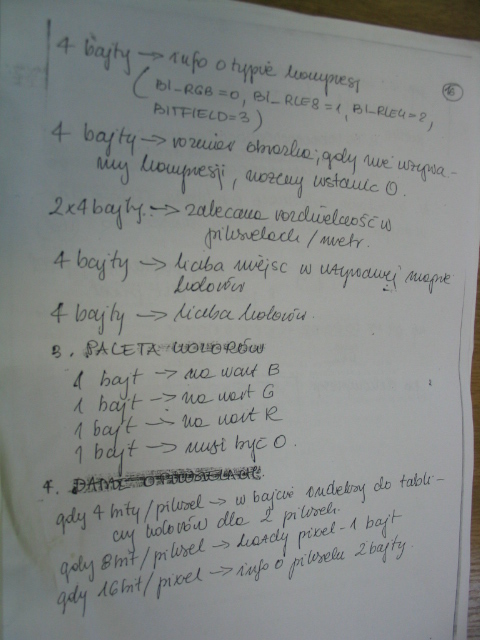 4 bajty → info o typie kompresji
(BI_RGB=0, BI_RLE8=1, BI_RLE4=2,
BITFIELD=3)
4 bajty → rozmiar obrazka, gdy nie używa-
my kompresji, możemy wstawić 0.
2×4 bajty → zalecana rozdzielczość w
pikselach / metr.
4 bajty → liczba miejsc w używanej mapie
kolorów
4 bajty → liczba kolorów.
3. PALETA KOLORÓW
1 bajt → na wart B
1 bajt → na wart G
1 bajt → na wart R
1 bajt → musi być 0.
4. DANE O PIKSELACH
gdy 4 bity/piksel → w bajcie indeksy do tabli-
cy kolorów dla 2 pikseli.
gdy 8bit/piksel → każdy pixel - 1 bajt
gdy 16bit/pixel → info o pikselu 2 bajty.